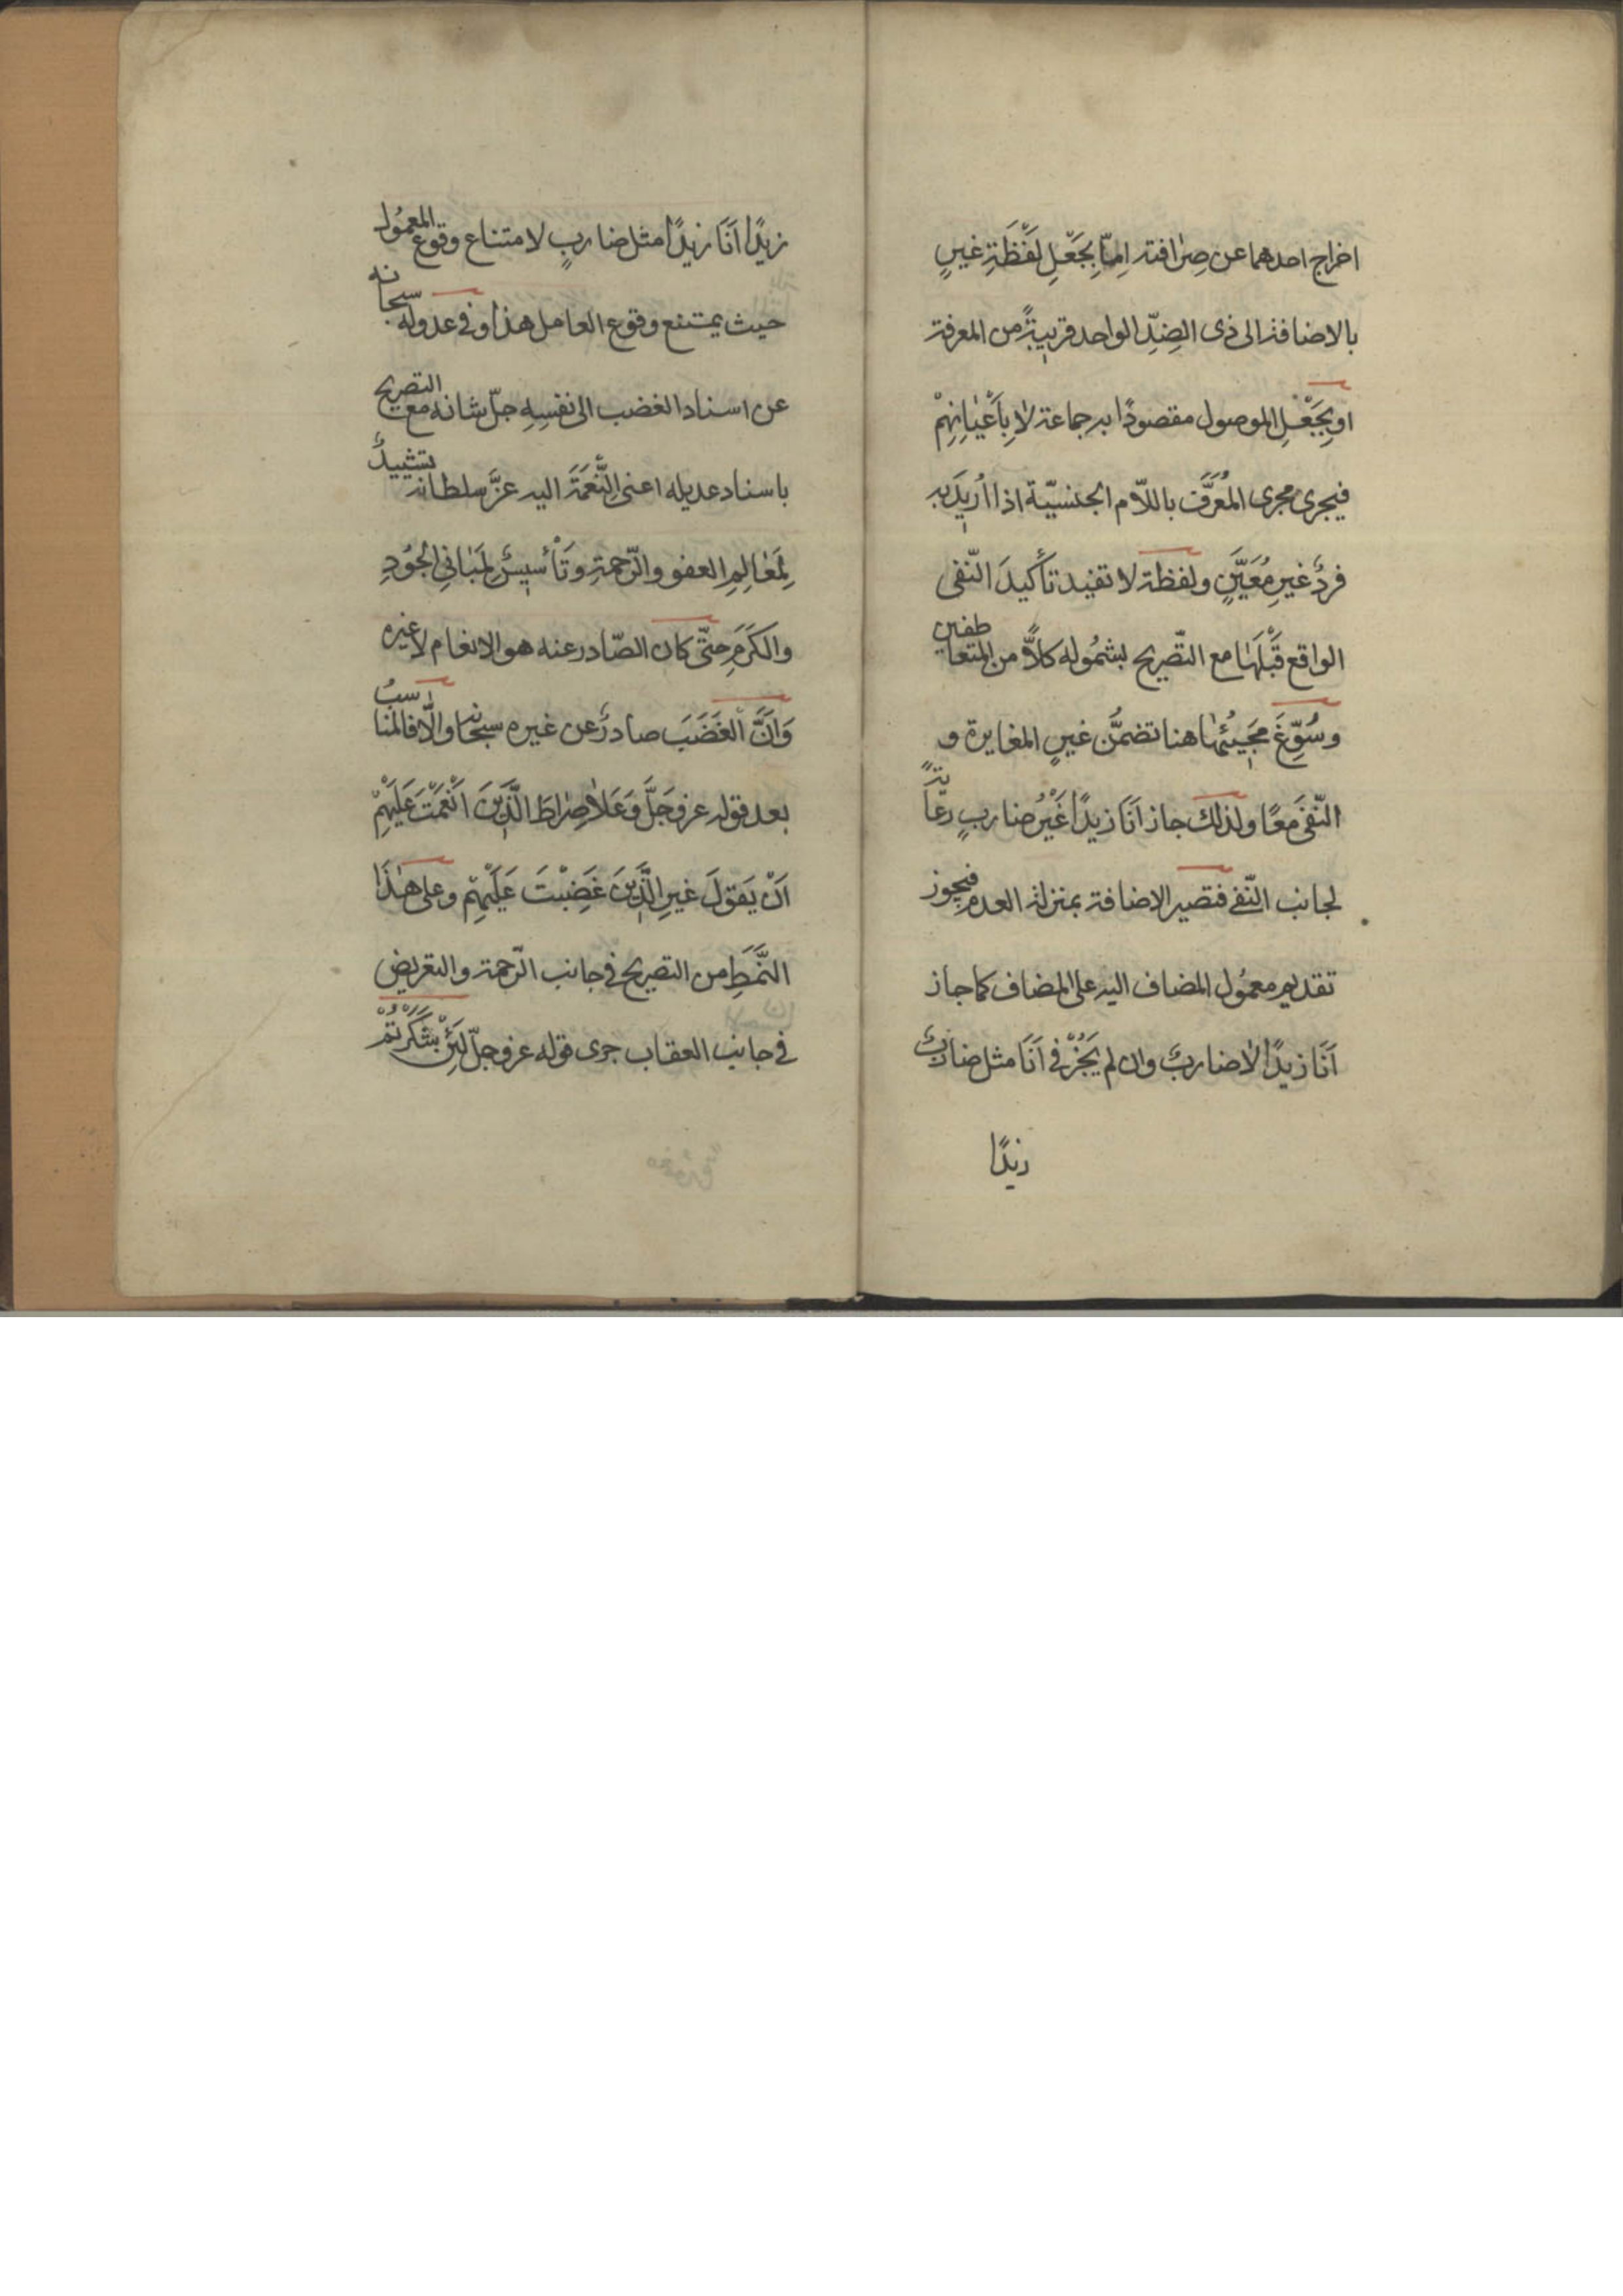 اخراج احدهما عن صِرافته اِمّا بِجَعْلِ لَفْظَةِ غيرٍ
بالاضافة الى ذى الضِدِّ الواحد قريبةً من المعرفة
او بِجَعْلِ الموصول مقصودًا به جماعة لا بِاَعْيانِهِمْ
فيجرى مجرى المُعَرَّف باللّام الجنسيّة اذا اُرِيدَ به
فردٌ غيرِ مُعَيَّنٍ ولفظة لا تفيد تأكيدَ النّفى
الواقع قَبْلَها مع التّصريح بشمُوله كلاًّ من المتعاطفين
وسُوِّغَ مَجِيئُها هنا تضمُّن غيرٍ المغايرة و
النّفىَ مَعًا ولذلك جاز اَنَا زيدًا غَيْرُ ضاربٍ رعايةً
لجانب النّفى فتصير الاضافة بمنزلة العدم فيجوز
تقديم معمُول المضاف اليه على المضاف كما جاز
اَنَا زيدًا لا ضاربٌ وان لم يَجُزْ فى اَنَا مثل ضاربٌ
زيدًا
زيدًا اَنَا زيدًا مثل ضاربٍ لامتناع وقوع المعمُول
حيث يمتنع وقوع العامل هذا وفى عدوله سبحانه
عن اسناد الغضب الى نفسِهِ جلّ شانه مع التصريح
باسناد عديله اعنى النِّعْمَةَ اليه عزَّ سلطانه تشييدٌ
لِمَعالِمِ العفو والرّحمةِ وتَأْسِيسٌ لِمَبانِى الجُودِ
والكَرَمِ حتّى كان الصّادر عنه هو الانعام لا غيره
وَاَنَّ الغَضَبَ صادرٌ عن غيره سبحانه والّا فالمناسبُ
بعد قوله عز وجَلَّ وَعَلا صِراطَ الَّذِينَ اَنْعَمْتَ عَلَيْهِمْ
اَنْ يَقولَ غيرِ الَّذِينَ غَضِبْتَ عَلَيْهِمْ وعلى هذَا
النَّمَطِ من التصريح فى جانب الرّحمة والتعريض
فى جانب العقاب جرى قوله عز وجلّ لَئِنْ شَكَرْتُمْ